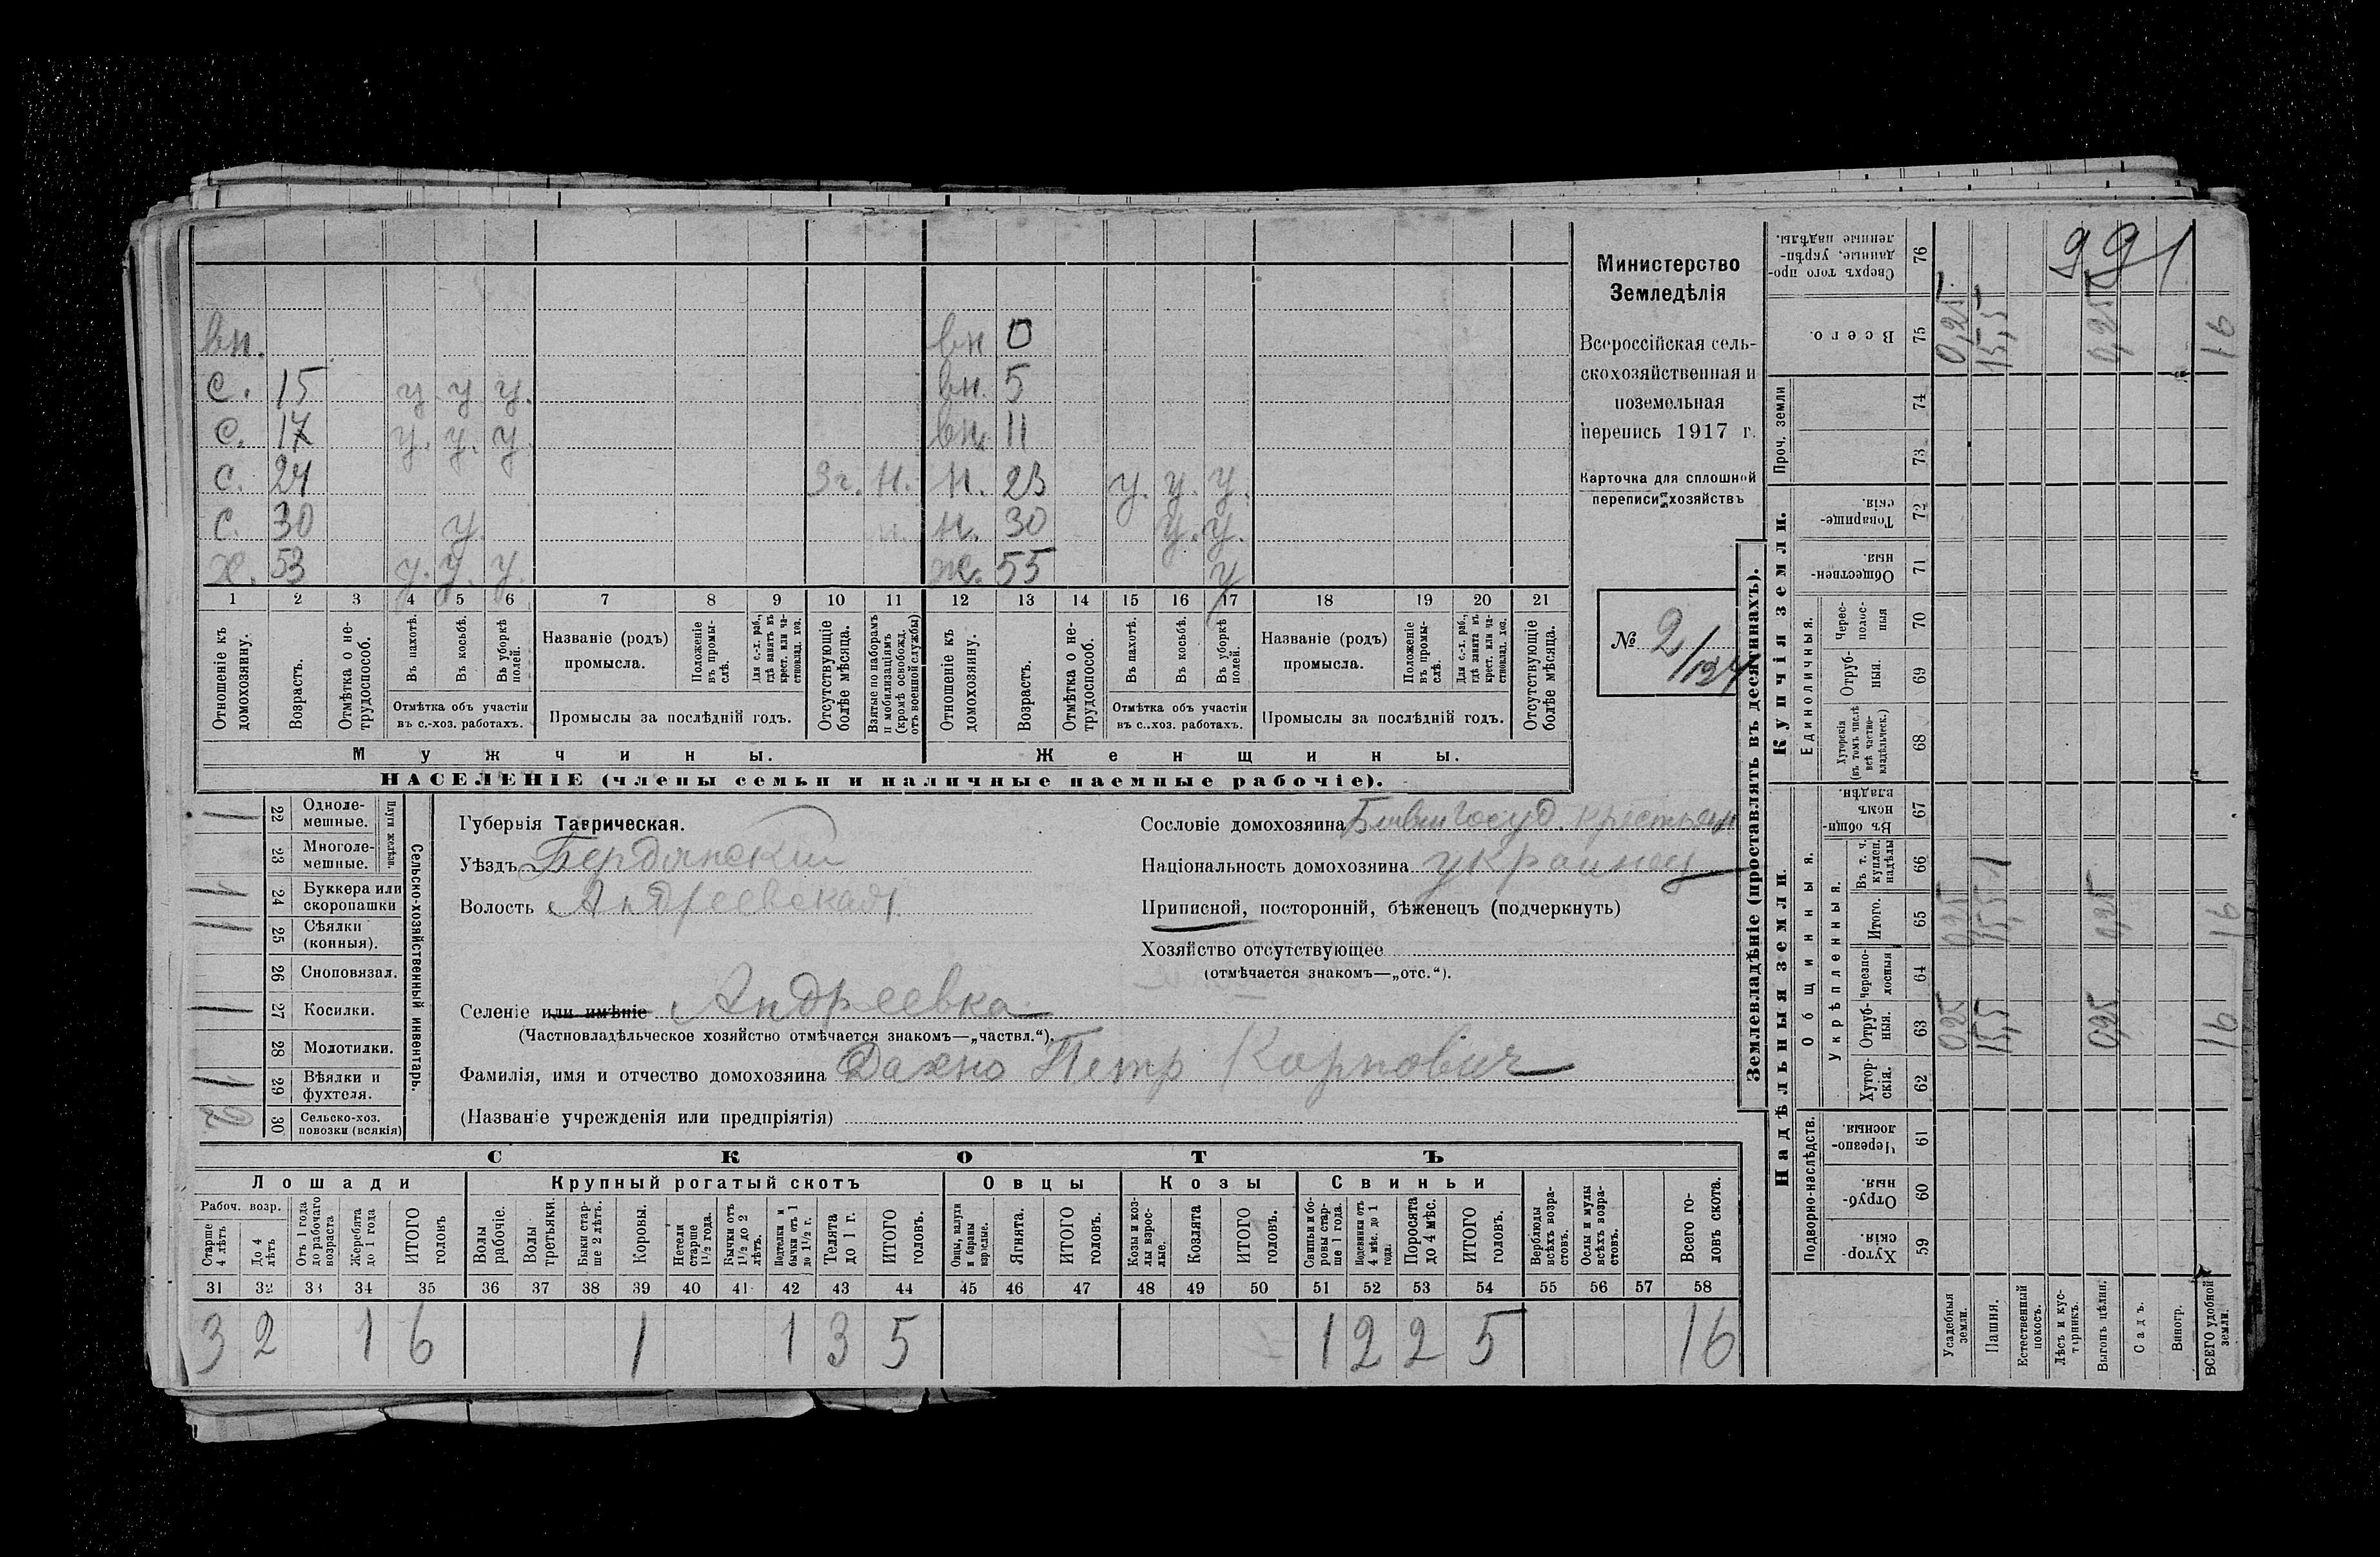 вн. вн 0
с. 15 у. у. у. вн. 5
с. 17 у. у. у. вн. 11
с. 24 3г. н. н. 23 у. у. у.
с. 30 у. н. 30 у. у.
х. 53 у. у. у. ж. 55 у
1 2 3 4 5 6 7 8 9 10 11 12 13 14 15 16 17 18 19 20 21
Отношеніе къ домохозяину.
Возрастъ.
Отмѣтка о не-трудоспособ.
Въ пахотѣ.
Въ косьбѣ.
Въ уборкѣ полей.
Отмѣтка объ участіи
въ с.-хоз. работахъ.
Названіе (родъ)
промысла.
Положеніе въ промы-слѣ.
Для с.-х. раб., гдѣ занятъ въ крест. или ча-стновлад. хоз.
Промыслы за послѣдній годъ.
Отсутствующіе болѣе мѣсяца.
Взятые по наборамъ и мобилизаціямъ (кромѣ освобожд. отъ военной службы)
Отношеніе къ домохозяину.
Возрастъ.
Отмѣтка о не-трудоспособ.
Въ пахотѣ.
Въ косьбѣ.
Въ уборкѣ полей.
Отмѣтка объ участіи
въ с..хоз. работахъ.
Названіе (родъ)
промысла.
Положеніе въ промы-слѣ.
Для с.-х. раб., гдѣ занята въ крест. или ча-стновлад. хоз.
Промыслы за послѣдній годъ.
Отсутствующіе болѣе мѣсяца.
Мужчины.
Женщины.
НАСЕЛЕНІЕ (члены семьи и наличные наемные рабочіе).
Министерство
Земледѣлія
Всероссійская сель-
скохозяйственная и
поземельная
перепись 1917 г.
Карточка для сплошной
переписи хозяйствъ
№ 2/124
22 Одноле-мешные. 1
23 Многоле-мешные.
Плуги желѣзн.
24 Буккера или скоропашки 1
25 Сѣялки (конныя). 1
26 Сноповязал.
27 Косилки. 1
28 Молотилки.
29 Вѣялки и фухтеля. 1
30 Сельско-хоз. повозки (всякія) 2
Сельско-хозяйственный инвентарь.
Губернія Таврическая.
Уѣздъ Бердянский
Волость Андреевская
Селеніе или имѣніе Андреевка
(Частновладѣльческое хозяйство отмѣчается знакомъ—„частвл.“).
Фамилія, имя и отчество домохозяина Дахно Петр Карпович
(Названіе учрежденія или предпріятія)
Сословіе домохозяина Бывш госуд. крестьян
Національность домохозяина украинец
Приписной, посторонній, бѣженецъ (подчеркнуть)
Хозяйство отсутствующее
(отмѣчается знакомъ—„отс.“).
СКОТЪ
Лошади
Крупный рогатый скотъ
Овцы
Козы
Свиньи
Рабоч. возр.
Старше 4 лѣтъ
До 4 лѣтъ
Отъ 1 года до рабочаго возраста
Жеребята до 1 года
ИТОГО головъ
Волы рабочіе.
Волы третьяки.
Быки стар-ше 2 лѣтъ.
Коровы.
Нетели старше 1½ года.
Бычки отъ 1½ до 2 лѣтъ.
Подтелки и бычки отъ 1 до 1½ г.
Телята до 1 г.
ИТОГО головъ.
Овцы, валухи и бараны взрослые.
Ягнята.
ИТОГО головъ.
Козы и коз-лы взрос-лые.
Козлята
ИТОГО головъ.
Свиньи и бо-ровы стар-ше 1 года.
Подсвинки отъ 4 мѣс. до 1 года.
Поросята до 4 мѣс.
ИТОГО головъ.
Верблюды всѣхъ возра-стовъ.
Ослы и мулы всѣхъ возра-стовъ.
Всего го-ловъ скота.
31 32 33 34 35 36 37 38 39 40 41 42 43 44 45 46 47 48 49 50 51 52 53 54 55 56 57 58
3 2 1 6 1 1 3 5 1 2 2 5 16
Землевладѣніе (проставлять въ десятинахъ).
Надѣльныя земли.
Купчія земли.
Проч. земли
Подворно-наслѣдств.
Общинныя.
Укрѣпленныя.
Единоличныя.
Хутор-скія. 59
Отруб-ныя. 60
Черезпо-лосныя. 61
Хутор-скія. 62
Отруб-ныя. 63
Черезпо-лосныя 64
Итого. 65
Въ т. ч. куплен. надѣлы 66
Въ общин-номъ владѣн. 67
Хуторскія (въ томъ числѣ всѣ частно-владѣльческ.) 68
Отруб-ныя. 69
Черес-полос-ныя 70
Обществен-ныя. 71
Товарище-скія. 72
73
74
Всего. 75
Сверхъ того про-данные, укрѣп-ленные надѣлы. 76
Усадебныя земли. 0,25 0,25 0,25
Пашня. 15,5 15,5 15,5
Естественный покосъ.
Лѣсъ и кус-тарникъ.
Выгонъ цѣлин. 0,25 0,25 0,25
Садъ.
Виногр.
ВСЕГО удобной земли. 16 16 16
991